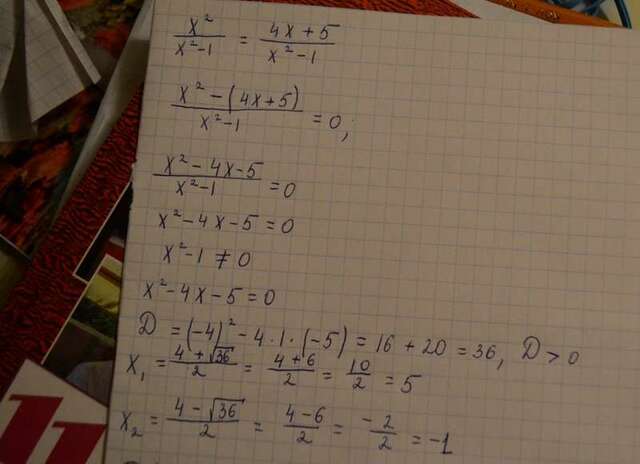 x²/(x²-1) = (4x+5)/(x²-1)
(x²-(4x+5))/(x²-1) = 0;
(x²-4x-5)/(x²-1) = 0
x²-4x-5=0
x²-1≠0
x²-4x-5=0
D = (-4)²-4·1·(-5) = 16+20 = 36, D>0
x₁ = (4+√36)/2 = (4+6)/2 = 10/2 = 5
x₂ = (4-√36)/2 = (4-6)/2 = -2/2 = -1
11